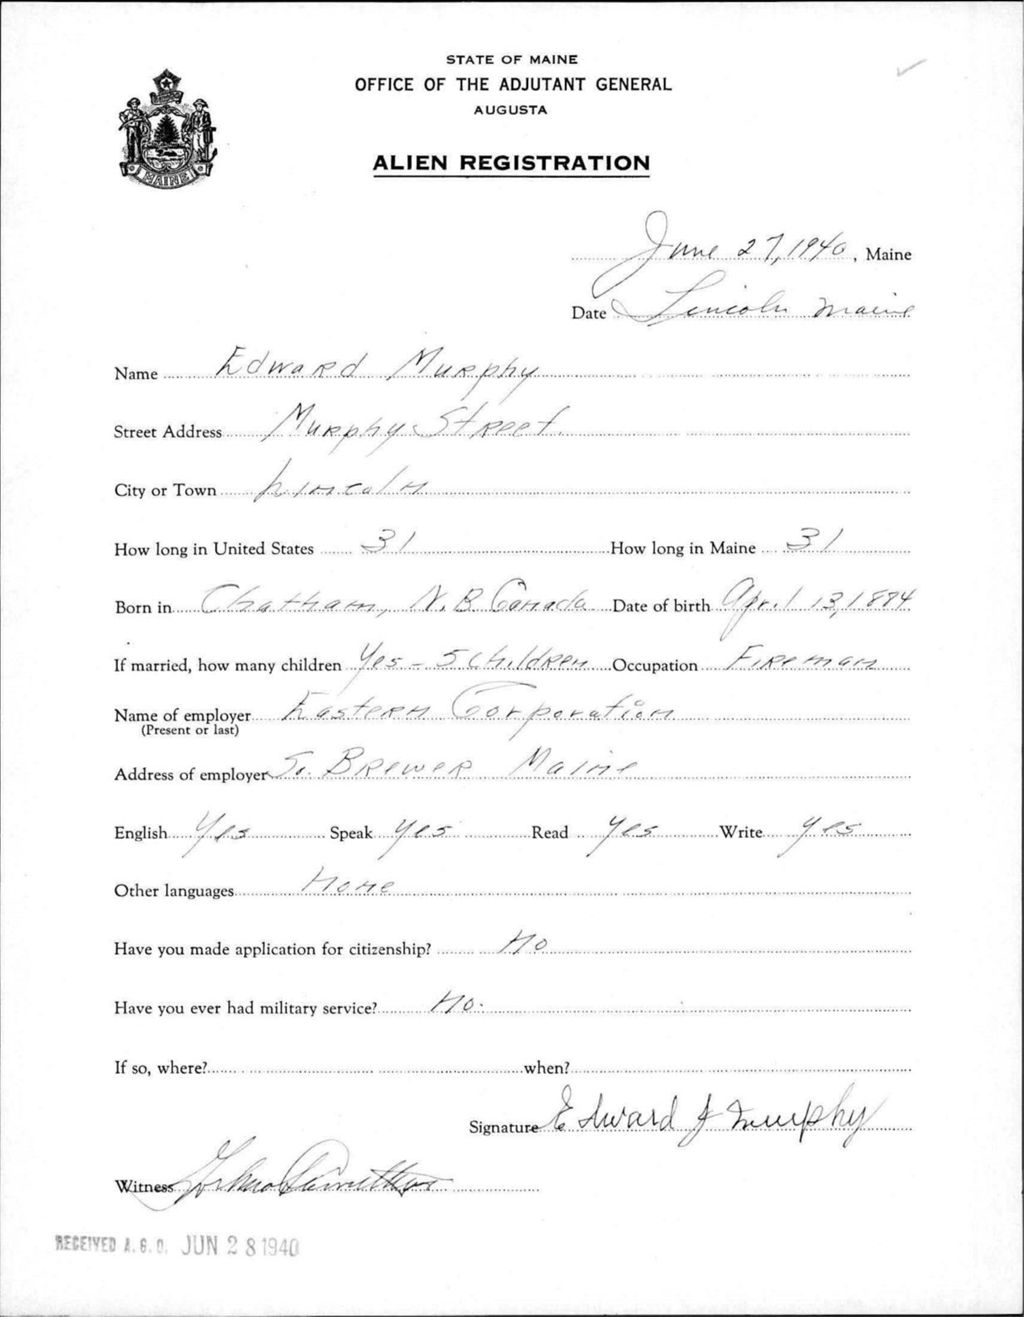 STATE OF MAINE
OFFICE OF THE ADJUTANT GENERAL
AUGUSTA
ALIEN REGISTRATION
MAINE
June 27, 1940, Maine
Date Lincoln Maine
Name Edward Murphy
Street Address Murphy Street
City or Town Lincoln
How long in United States 31 How long in Maine 31
Born in Chatham, N.B. Canada Date of birth April 13, 1884
If married, how many children Yes - 5 Children Occupation Fireman
Name of employer Eastern Corporation
(Present or last)
Address of employer So. Brewer Maine
English Yes Speak Yes Read Yes Write Yes
Other languages None
Have you made application for citizenship? No
Have you ever had military service? No.
If so, where? when?
Signature Edward J Murphy
Witness
RECEIVED A.G.O. JUN 28 1940